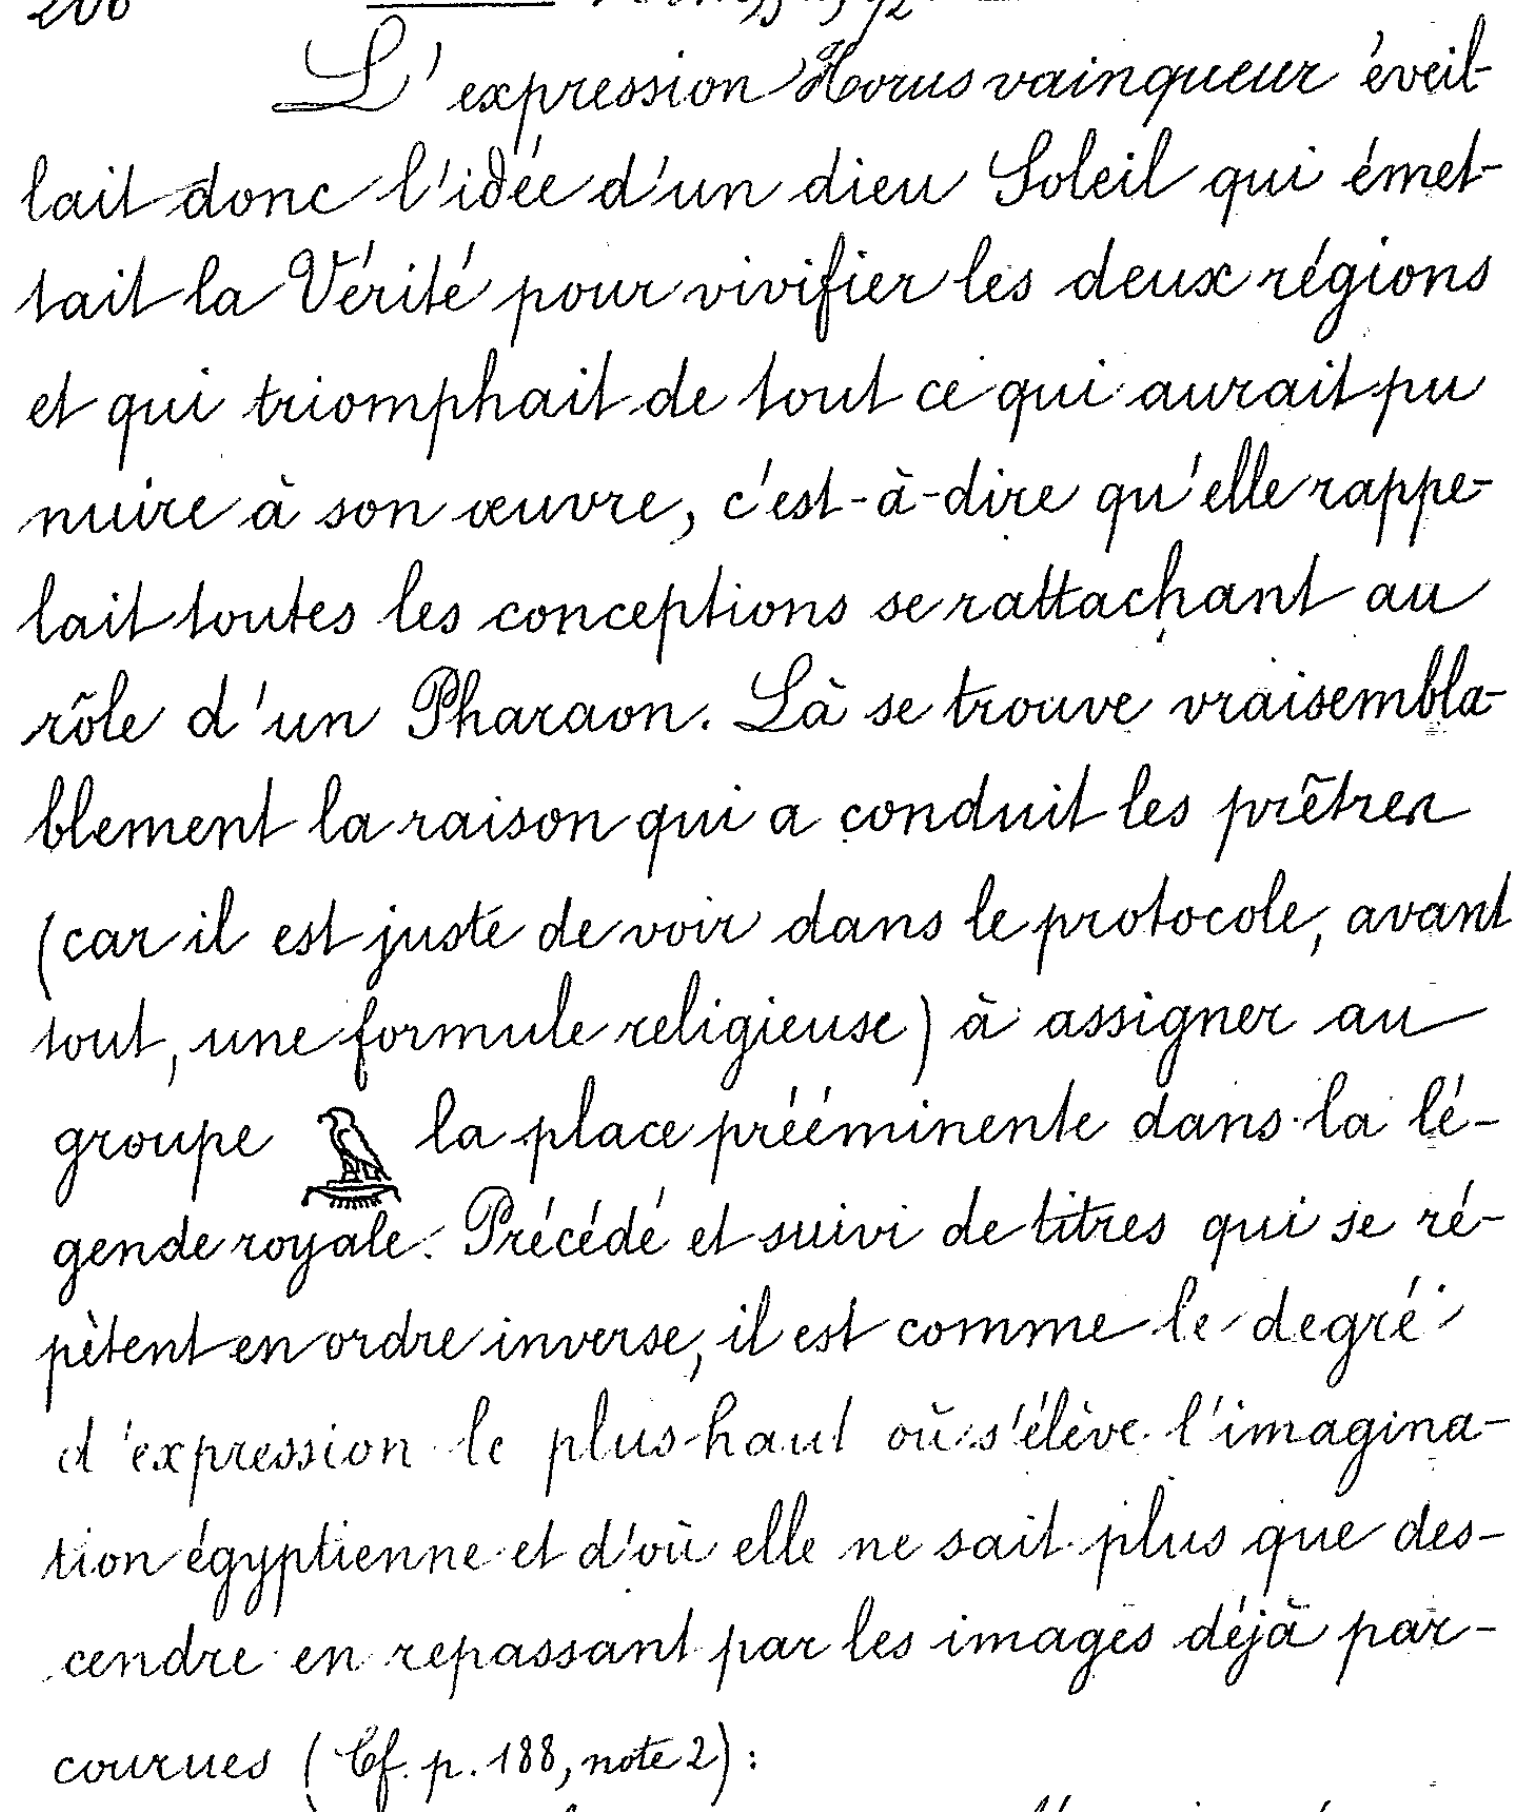 L'expression Horus vainqueur éveil-
lait donc l'idée d'un dieu Soleil qui émet-
tait la Vérité pour vivifier les deux régions
et qui triomphait de tout ce qui aurait pu
nuire à son œuvre, c'est-à-dire qu'elle rappe-
lait toutes les conceptions se rattachant au
rôle d'un Pharaon. Là se trouve vraisembla-
blement la raison qui a conduit les prêtres
(car il est juste de voir dans le protocole, avant
tout, une formule religieuse) à assigner au
groupe 𓅉 la place prééminente dans la lé-
gende royale. Précédé et suivi de titres qui se ré-
pètent en ordre inverse, il est comme le degré
d'expression le plus haut où s'élève l'imagina-
tion égyptienne et d'où elle ne sait plus que des-
cendre en repassant par les images déjà par-
courues (Cf. p. 188, note 2) :